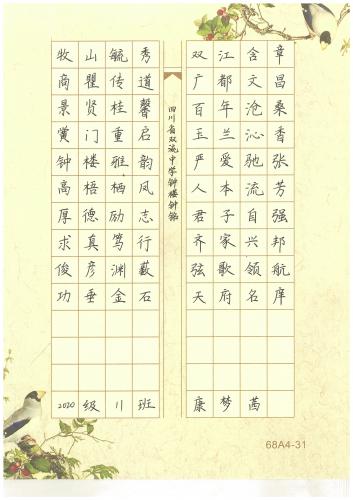 四川省双流中学钟楼钟铭
牧山毓秀 双江含章
商瞿传道 广都文昌
景贤桂馨 百年沧桑
黉门重启 玉兰沁香
钟楼雅韵 严爱驰张
高梧栖凤 人本流芳
厚德励志 君子自强
求真笃行 齐家兴邦
俊彦渊薮 弦歌领航
功垂金石 天府名庠
2020级11班 康梦茜
68A4-31